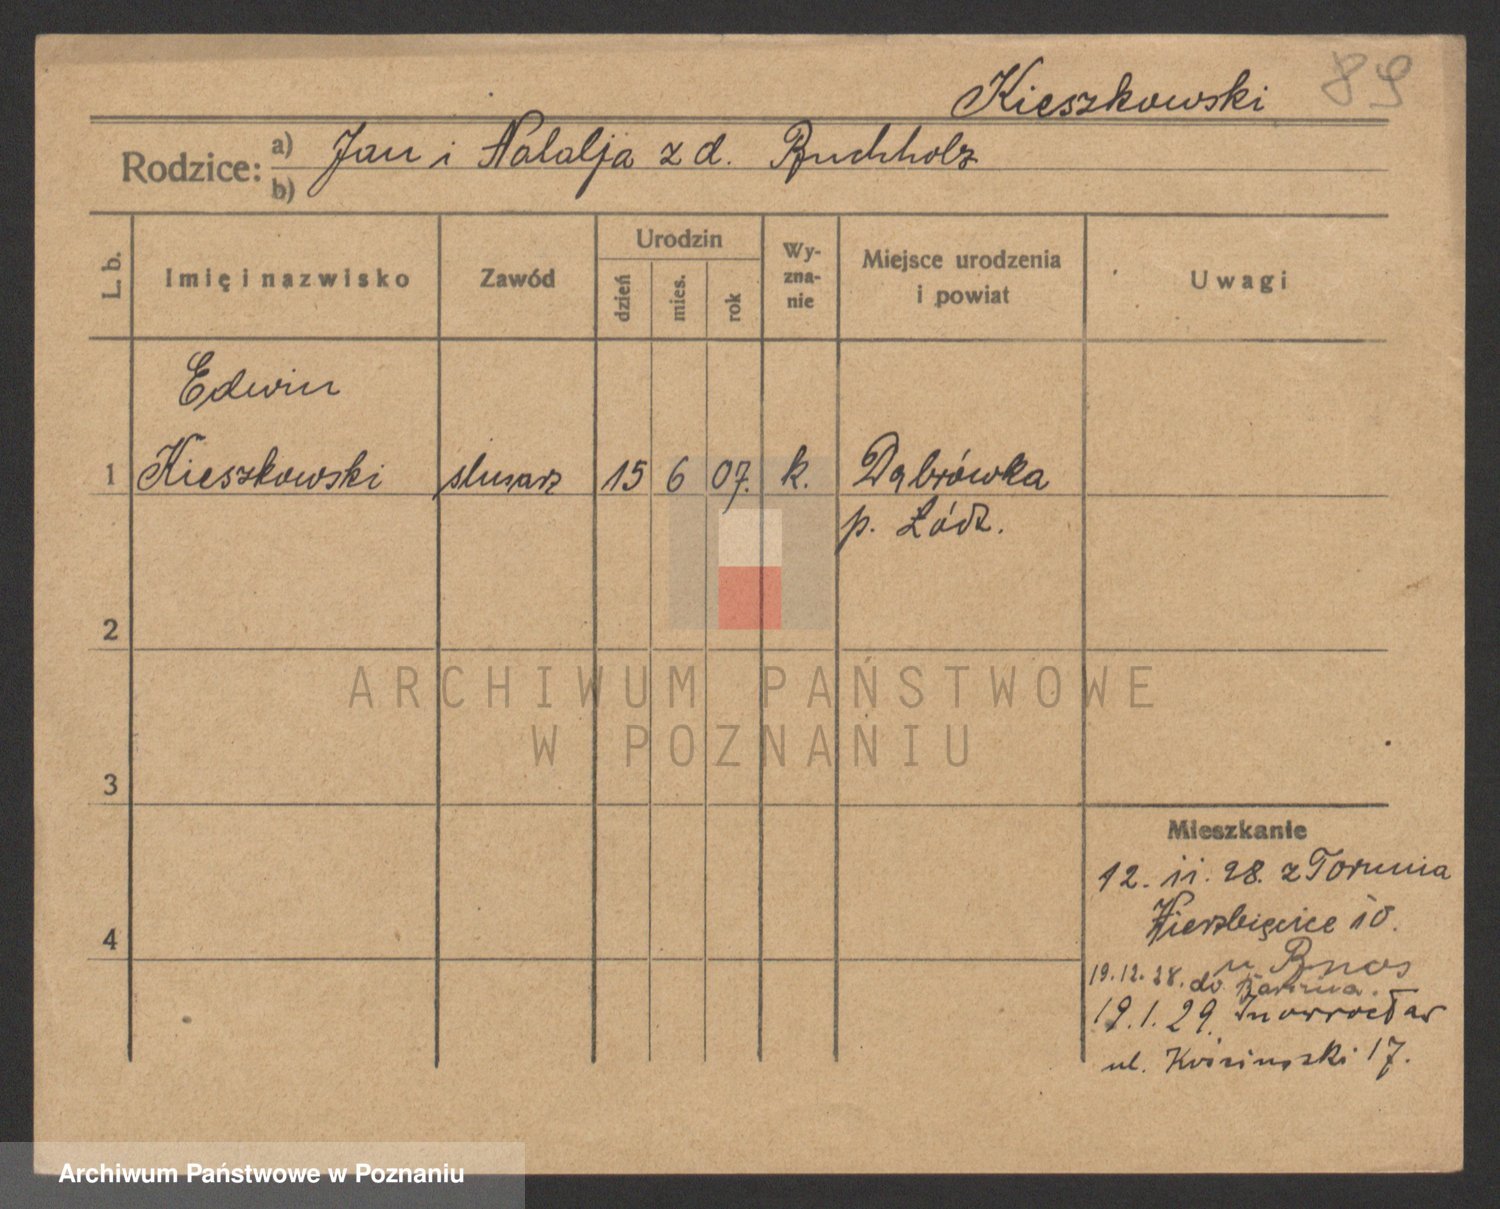 89
Kieszkowski
Rodzice: a) Jan i Natalja z d. Buchholz
b)
L. b. Imię i nazwisko Zawód Urodzin dzień mies. rok Wy-zna-nie Miejsce urodzenia i powiat Uwagi
Edwin
1 Kieszkowski slusarz 15 6 07. k. Dąbrówka
p. Łódź.
2
ARCHIWUM PAŃSTWOWE
W POZNANIU
3
Mieszkanie
12. 11. 28. z Torunia
Wierzbięcice 10.
4
u
19.12.28. do
19.1.29. Inowrocław
ul. 17.
Archiwum Państwowe w Poznaniu